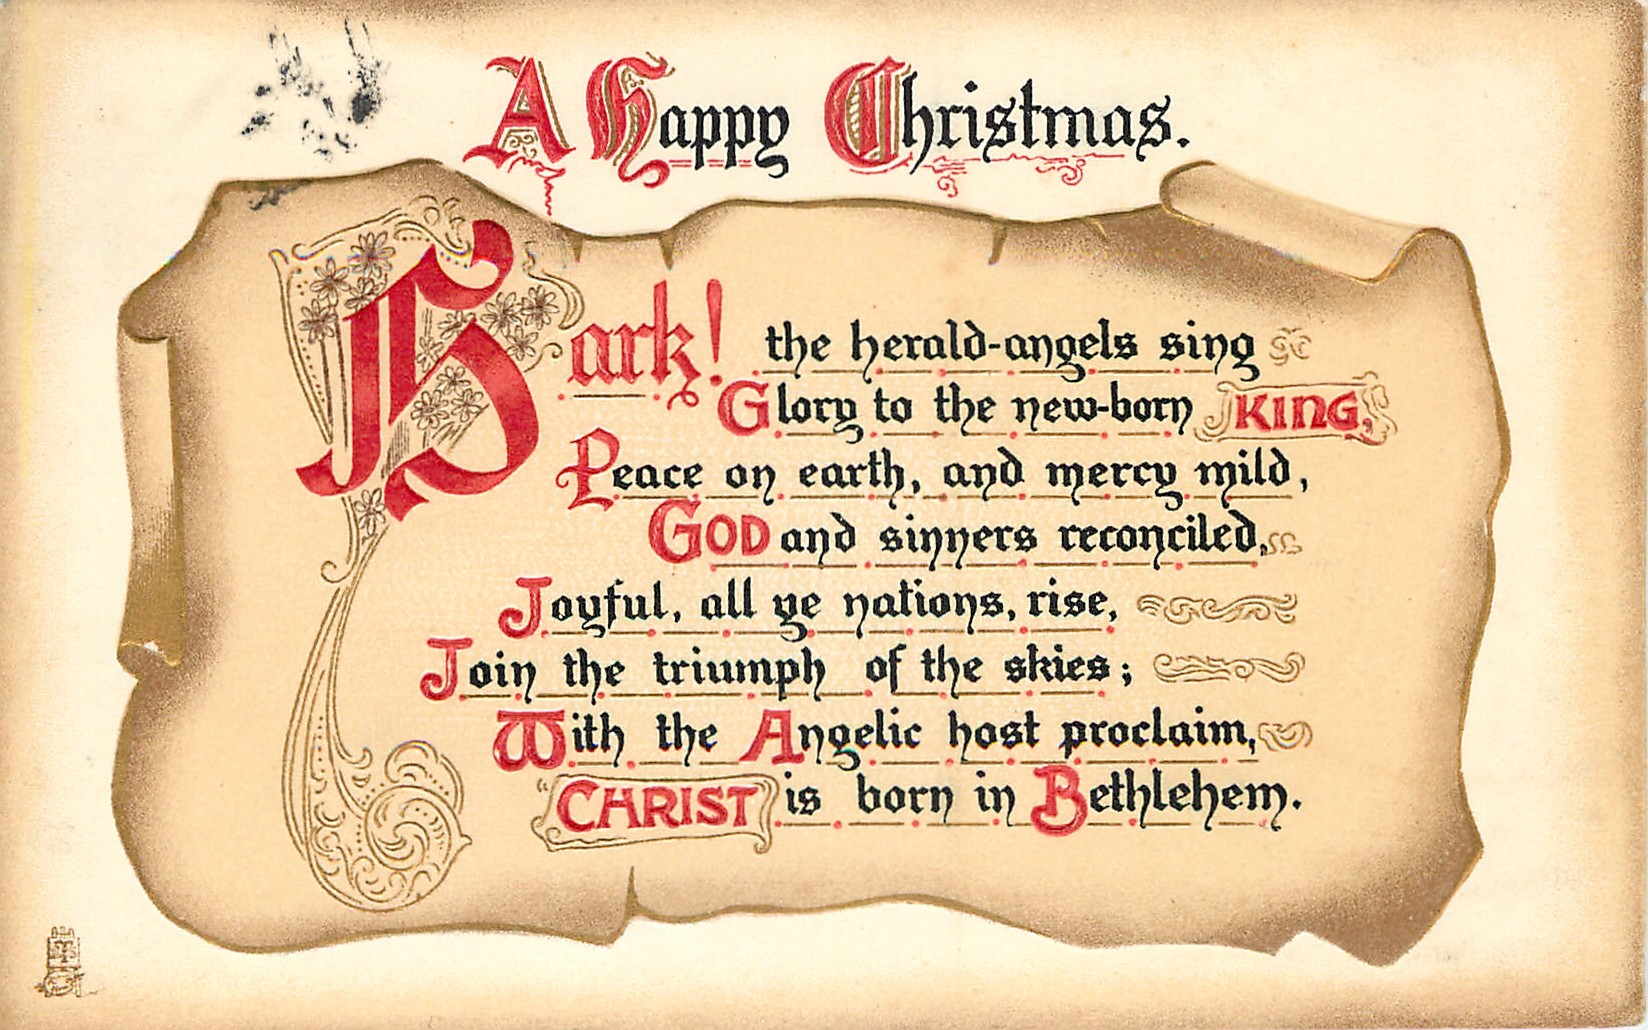 A Happy Christmas.
Hark! the herald-angels sing
Glory to the new-born KING,
Peace on earth, and mercy mild,
GOD and sinners reconciled,
Joyful, all ye nations, rise,
Join the triumph of the skies;
With the Angelic host proclaim,
"CHRIST is born in Bethlehem.